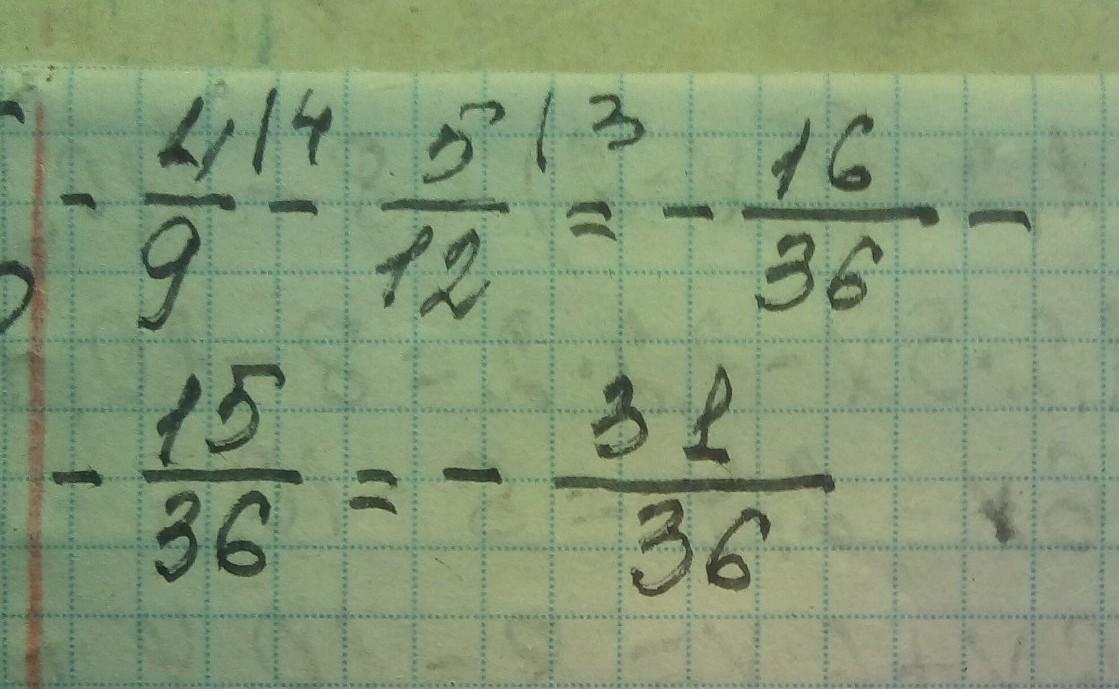 - 4/9 |4 - 5/12 |3 = - 16/36 -
- 15/36 = - 31/36